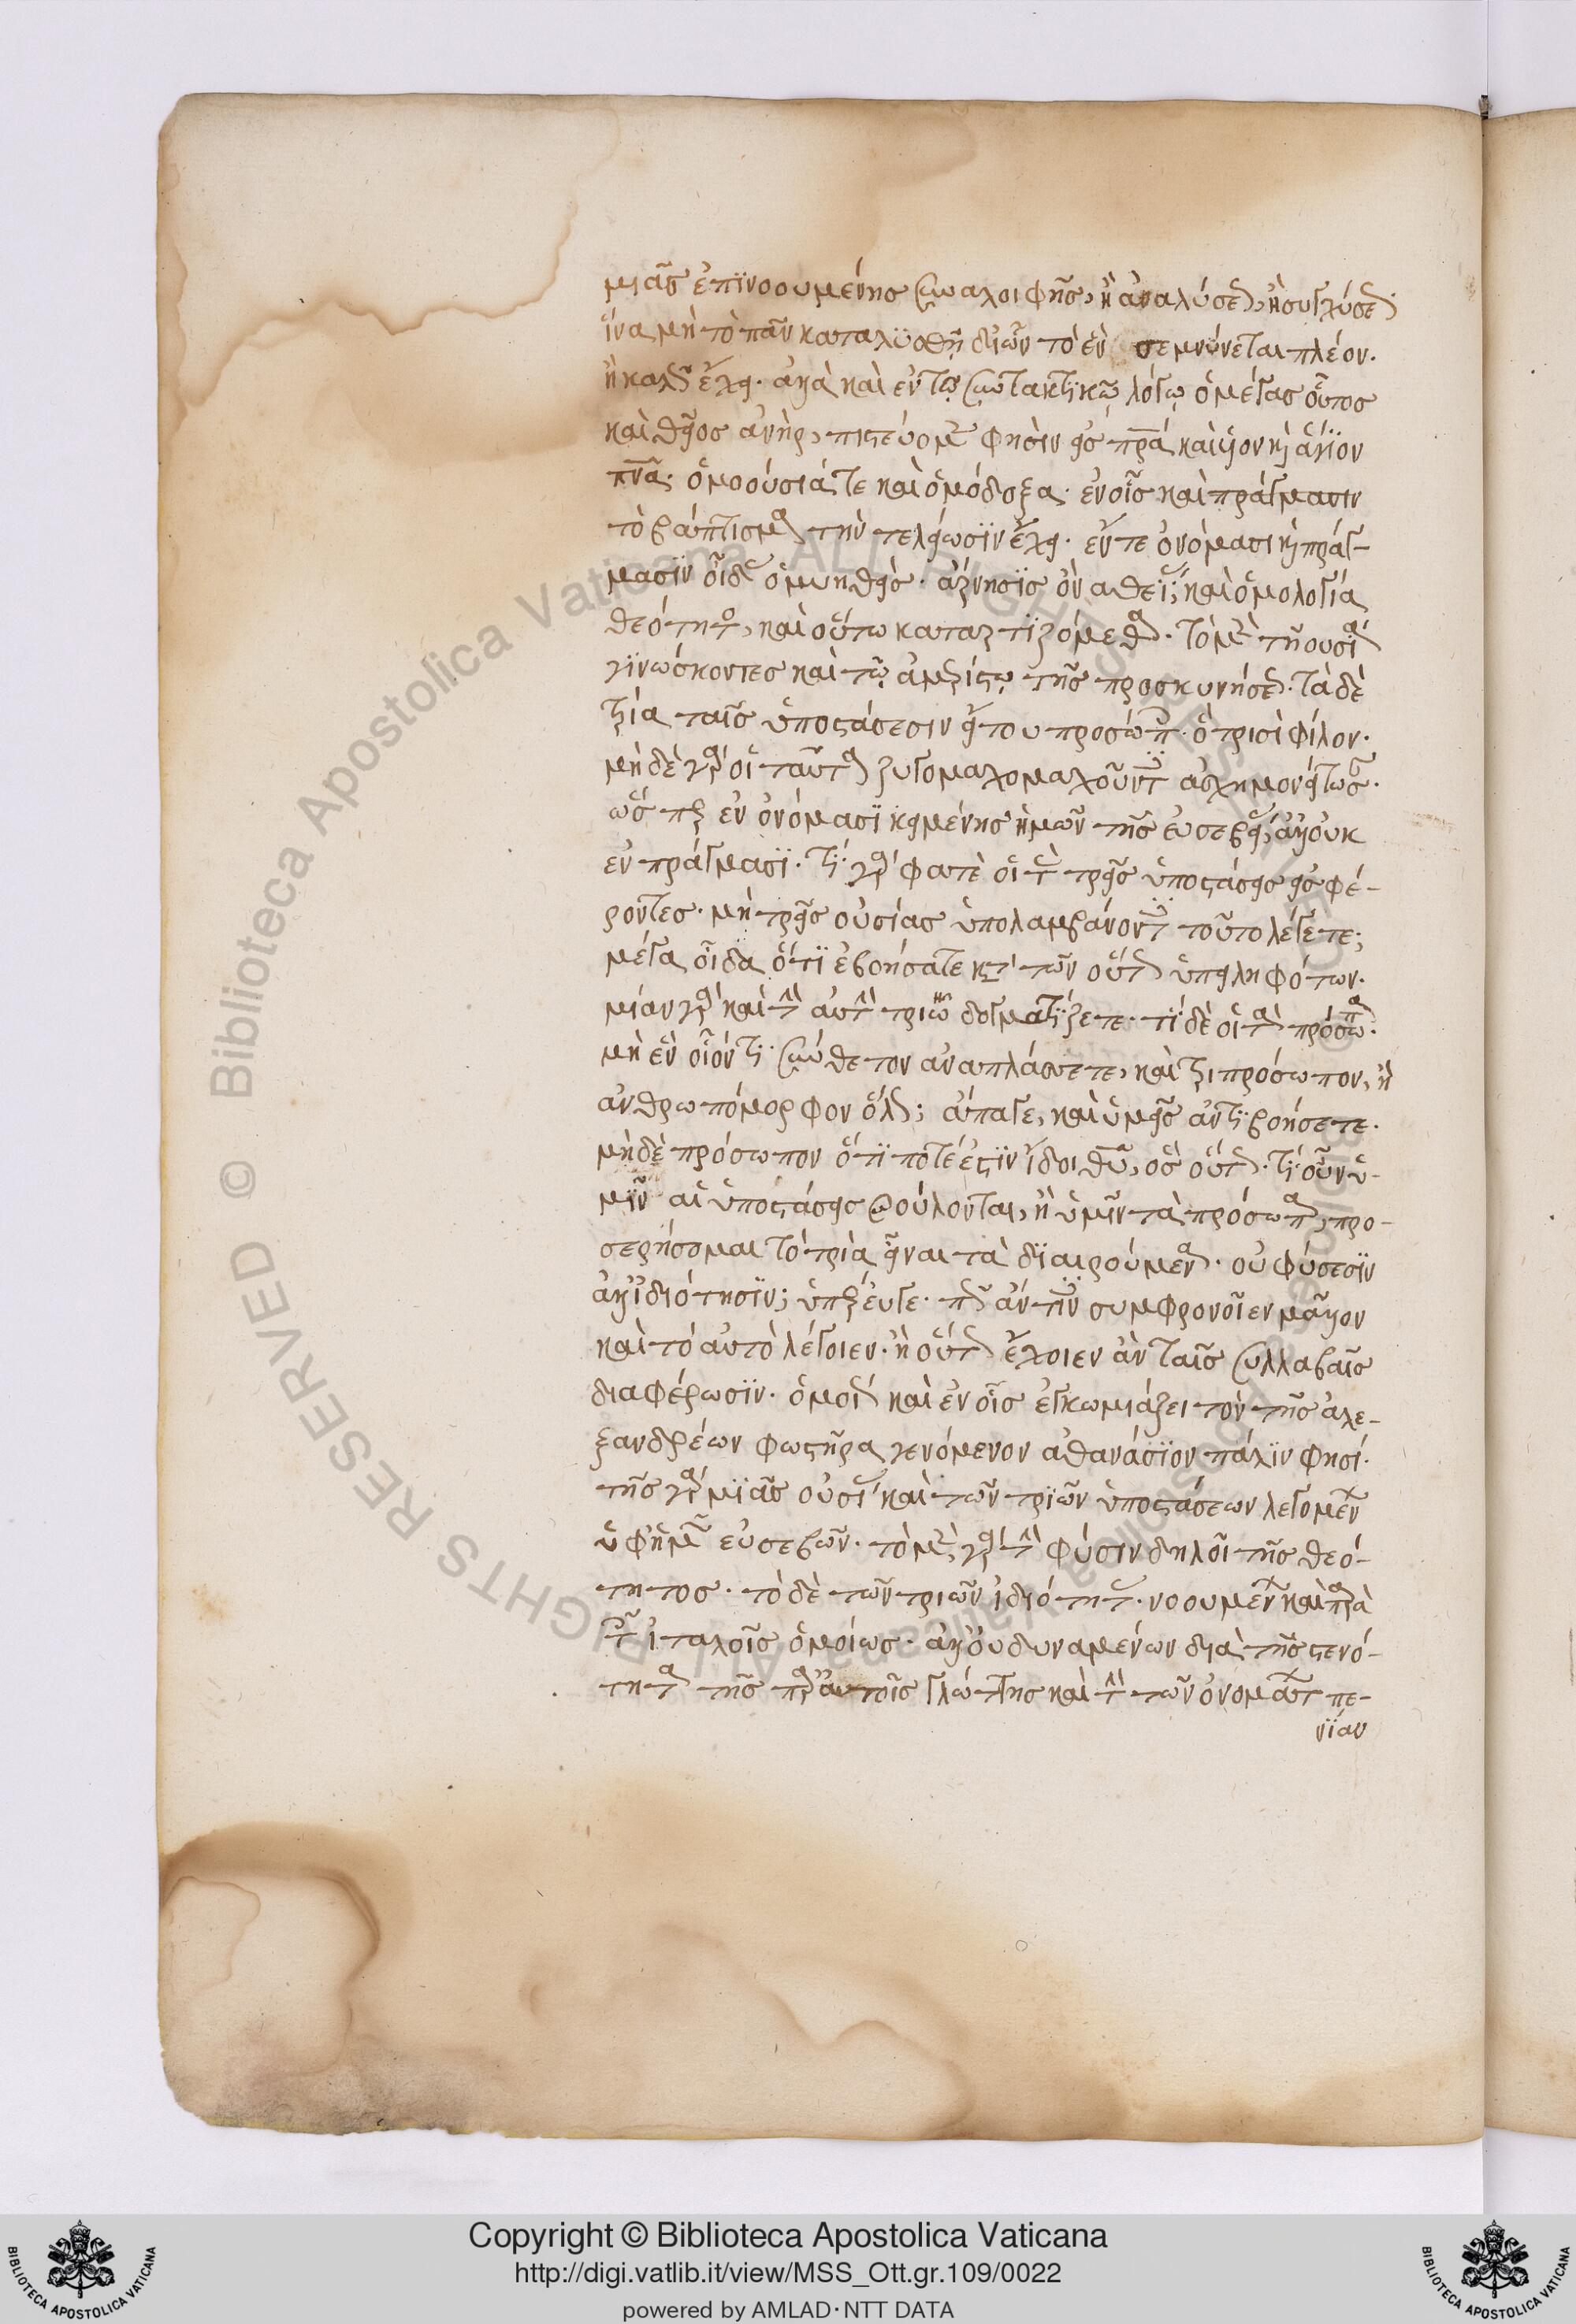 μιᾶς ἐπϊνοουμένης συναλοιφῆς, ἢ ἀναλύσεως, ἢ συγχύσεως
ἵνα μὴ τὸ πᾶν καταλϋθῇ δι ὧν τὸ ἓν σεμνύνεται πλέον.
ἢ καλῶς ἔχει. ἀλλὰ καὶ ἐν τῷ συντακτϊκῷ λόγῳ ὁ μέγας οὗτος
καὶ θεῖος ἀνήρ, πιστεύομεν φησὶν εἰς πρᾶ καὶ υἱὸν κὶ ἅγϊον
πνᾶ. ὁμοούσιά τε καὶ ὁμόδοξα. ἐν οἷς καὶ πράγμασιν
τὸ βάπτισμα τὴν τελείωσϊν ἔχει. ἔν τε ὀνόμασι κὶ πράγ-
μασϊν οἶδεν ὁ μυηθείς. ἄρνησϊς ὂν ἀθεΐας καὶ ὁμολογία
θεότητος, καὶ οὕτω καταρτϊζόμεθα. τὸ μὲν τῇ οὐσίᾳ
γϊνώσκοντες καὶ τῷ ἀμερίστῳ τῆς προσκυνήσεως. τὰ δὲ
τρία ταῖς ὑποστάσεσιν εἴτουν προσώποις. ὅ τρισὶ φίλον.
μὴ δὲ γὰρ οἱ ταῦτα ζυγομαχομαχοῦντες ἀσχημονείτωσαν.
ὥσπερ ἐν ὀνόμασϊ κειμένης ἡμῶν τῆς εὐσεβείας, ἀλλ' οὐκ
ἐν πράγμασϊ. τί γὰρ φατὲ οἱ τὰς τρεῖς ὑποστάσεις εἰσφέ-
ροντες. μὴ τρεῖς οὐσίας ὑπολαμβάνοντες τοῦτο λέγετε;
μέγα οἶδα ὅτϊ ἐβοήσατε κατὰ τῶν οὕτως ὑπειληφότων.
μίαν γὰρ καὶ τὴν αὐτὴν τριῶν δογματίζετε. τί δὲ οἱ τὰ πρόσωπα.
μὴ ἓν οἷόν τι σύνθετον ἀναπλάσσετε, καὶ τριπρόσωπον, ἢ
ἀνθρωπόμορφον ὅλως; ἄπαγε, καὶ ὑμεῖς ἀντϊβοήσετε.
μὴ δὲ πρόσωπον ὅτϊ ποτέ ἐστϊν ἴδοι θῦ, ὃς οὕτως. τί οὖν ὑ-
μῖν αἱ ὑποστάσεις βούλονται, ἢ ὑμῖν τὰ πρόσωπα, προ-
σερήσομαι τὸ τρία εἶναι τὰ δϊαιρούμενα. οὐ φύσεσϊν
ἀλλ' ἰδιότησϊν; ὑπέρευγε. πῶς ἄν τινες συμφρονοῖεν μᾶλλον
καὶ τὸ αὐτὸ λέγοιεν. ἢ οὕτως ἔχοιεν ἂν ταῖς συλλαβαῖς
διαφέρωσϊν. ὁμοίως καὶ ἐν οἷς ἐγκωμιάζει τὸν τῆς ἀλε-
ξανδρέων φωστῆρα γενόμενον ἀθανάσϊον πάλϊν φησί.
τῆς γὰρ μϊᾶς οὐσίας καὶ τῶν τρϊῶν ὑποστάσεων λεγομένων
ὑφ' ἡμῶν εὐσεβῶς. τὸ μὲν γὰρ τὴν φύσιν δηλοῖ τῆς θεό-
τητος. τὸ δὲ τῶν τριῶν ἰδιότητας. νοουμένων καὶ παρὰ
τοῖς ἰταλοῖς ὁμοίως. ἀλλ' οὐ δυναμένων διὰ τῆς στενό-
τητα τῆς παρ' αὐτοῖς γλώττης καὶ τὴν τῶν ὀνομάτων πε-
νϊαν
Copyright © Biblioteca Apostolica Vaticana
http://digi.vatlib.it/view/MSS_Ott.gr.109/0022
powered by AMLAD·NTT DATA